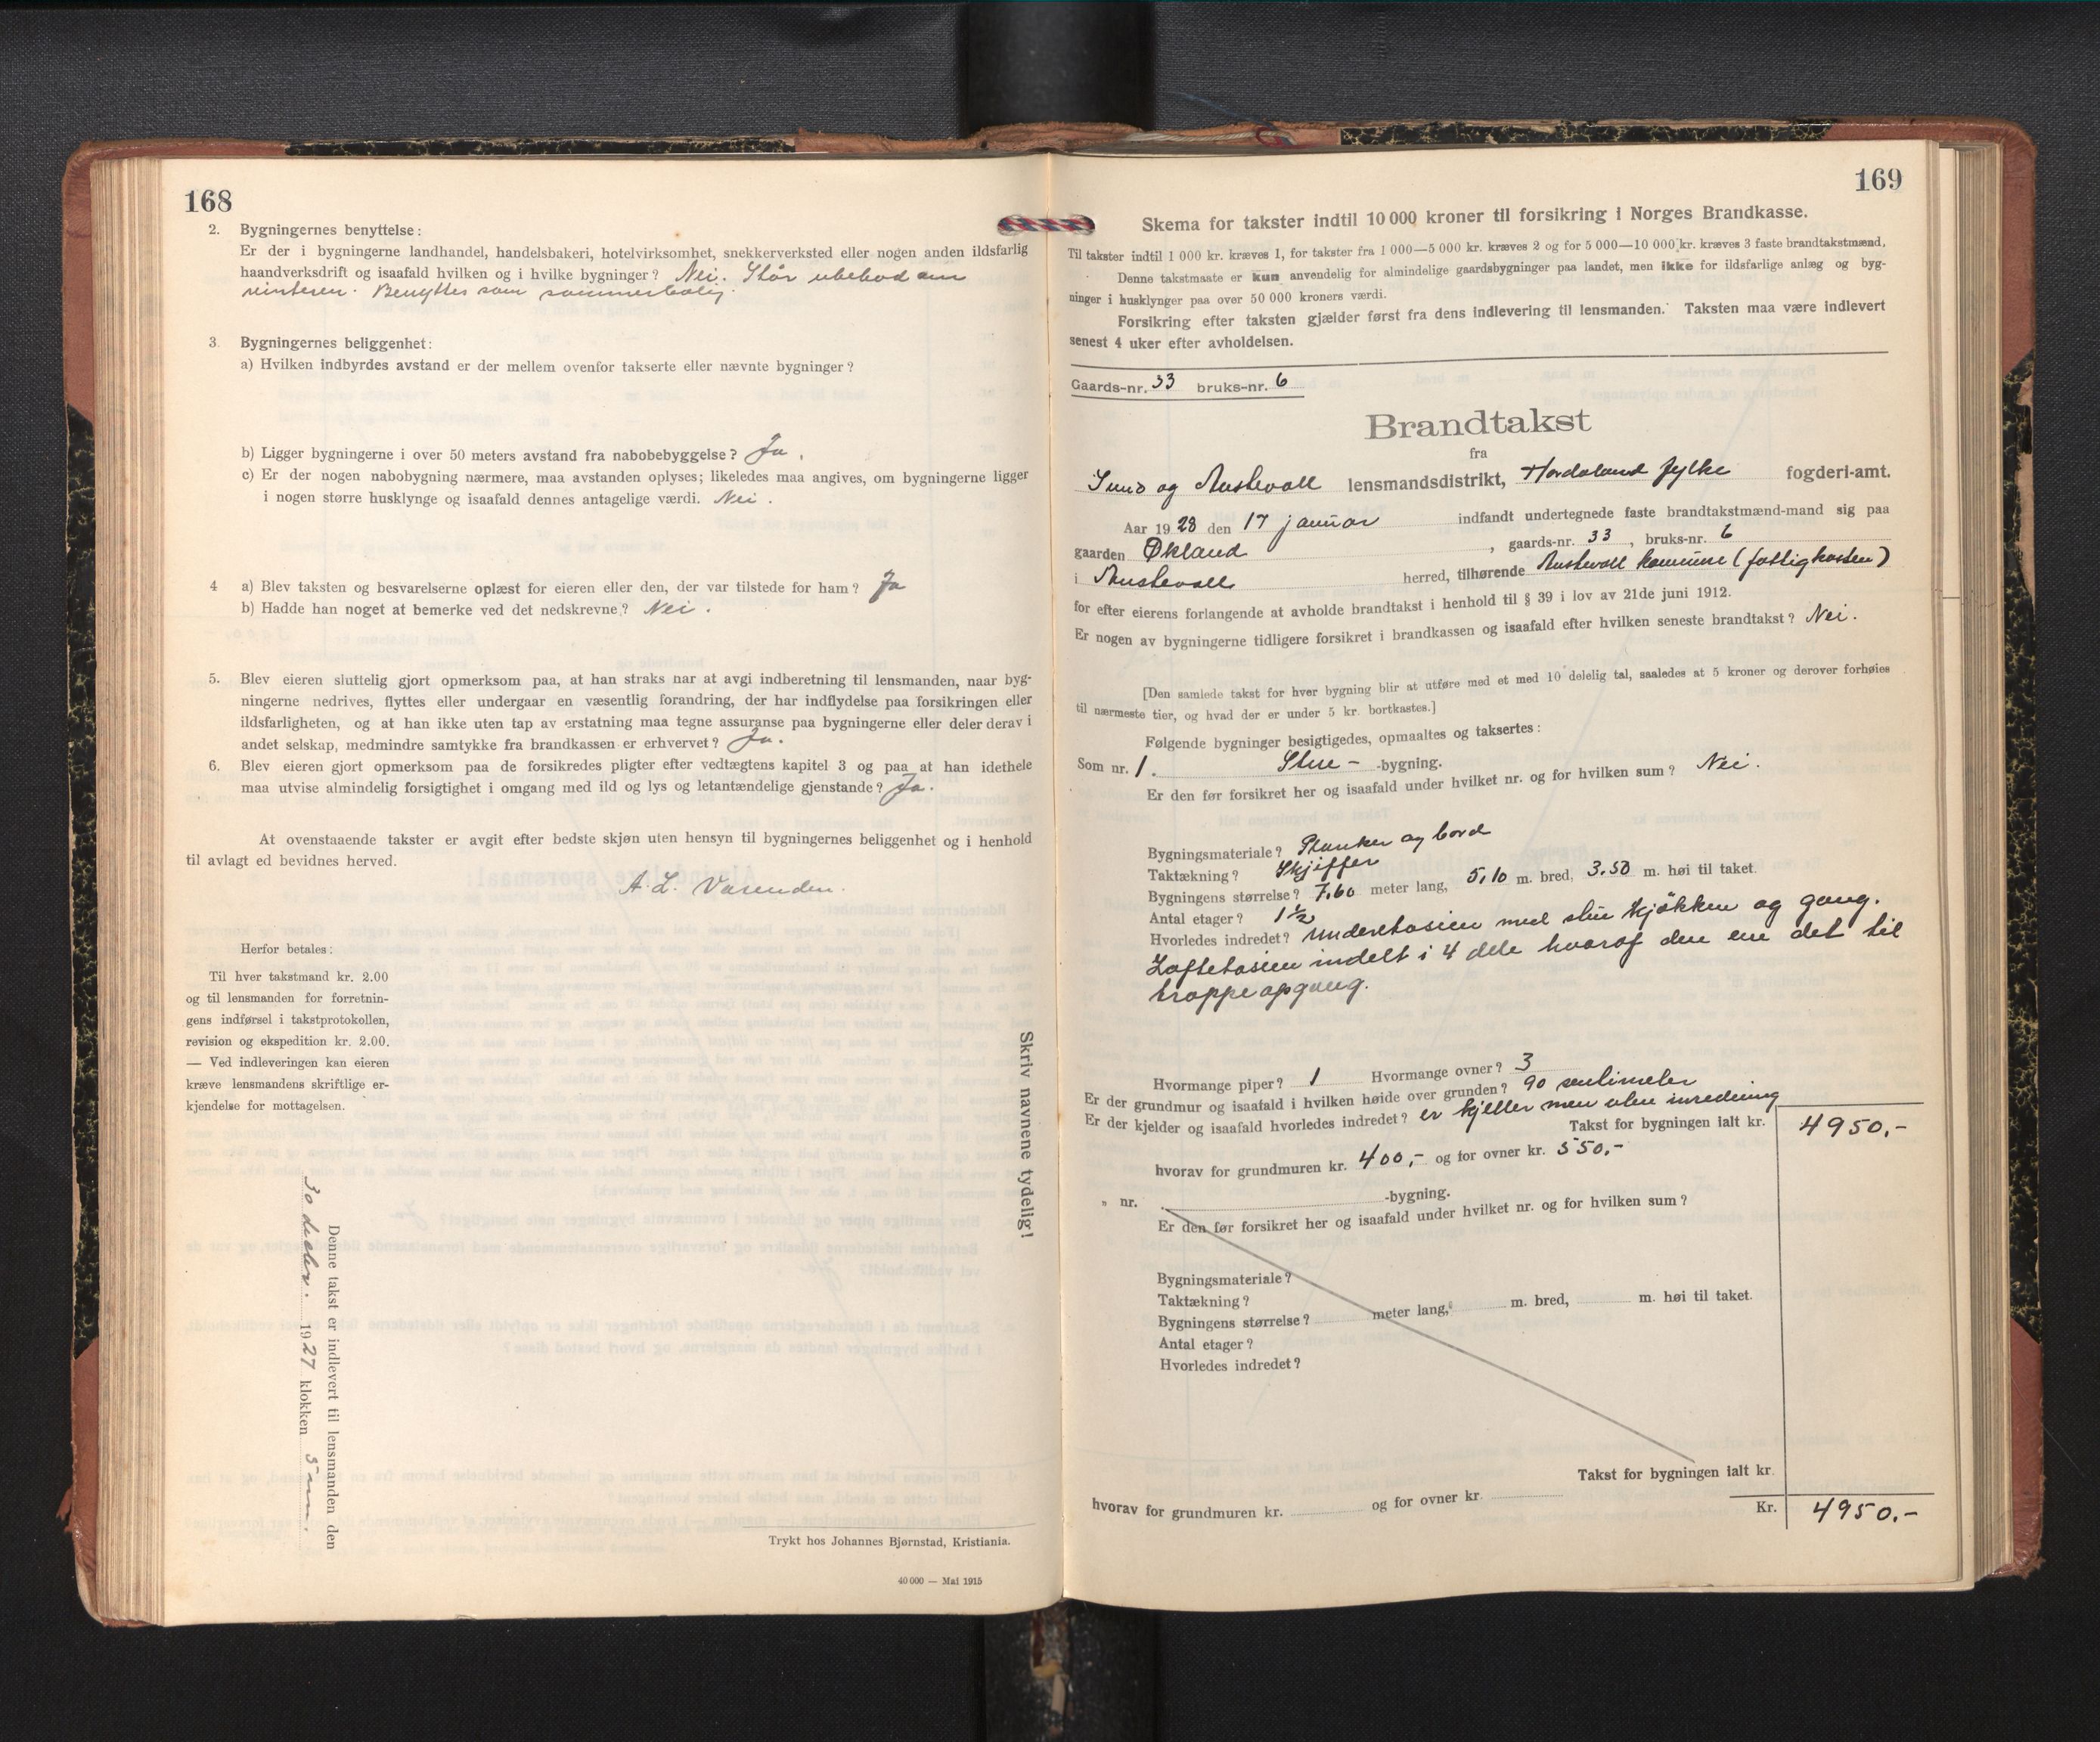 168
2. Bygningernes benyttelse:
Er der i bygningerne landhandel, handelsbakeri, hotelvirksomhet, snekkerverksted eller nogen anden ildsfarlig
haandverksdrift og isaafald hvilken og i hvilke bygninger? Nei. Står ubebod om
vinteren. Benyttes som sommerbolig.
3. Bygningernes beliggenhet:
a) Hvilken indbyrdes avstand er der mellem ovenfor takserte eller nævnte bygninger?
b) Ligger bygningerne i over 50 meters avstand fra nabobebyggelse? Ja.
c) Er der nogen nabobygning nærmere, maa avstanden oplyses; likeledes maa angives, om bygningerne ligger
i nogen større husklynge og isaafald dennes antagelige værdi. Nei.
4 a) Blev taksten og besvarelserne oplæst for eieren eller den, der var tilstede for ham? Ja
b) Hadde han noget at bemerke ved det nedskrevne? Nei.
5. Blev eieren sluttelig gjort opmerksom paa, at han straks har at avgi indberetning til lensmanden, naar byg-
ningerne nedrives, flyttes eller undergaar en væsentlig forandring, der har indflydelse paa forsikringen eller
ildsfarligheten, og at han ikke uten tap av erstatning maa tegne assuranse paa bygningerne eller deler derav i
andet selskap, medmindre samtykke fra brandkassen er erhvervet? Ja.
6. Blev eieren gjort opmerksom paa de forsikredes pligter efter vedtægtens kapitel 3 og paa at han idethele
maa utvise almindelig forsigtighet i omgang med ild og lys og letantændelige gjenstande? Ja.
At ovenstaaende takster er avgit efter bedste skjøn uten hensyn til bygningernes beliggenhet og i henhold
til avlagt ed bevidnes herved.
A. L. Vasenden.
Herfor betales:
Til hver takstmand kr. 2.00
og til lensmanden for forretnin-
gens indførsel i takstprotokollen,
revision og ekspedition kr. 2.00.
— Ved indleveringen kan eieren
kræve lensmandens skriftlige er-
kjendelse for mottagelsen.
Skriv navnene tydelig!
Denne takst er indlevert til lensmanden den
30 decbr. 1927 klokken 5
Trykt hos Johannes Bjørnstad, Kristiania.
40 000 — Mai 1915
169
Skema for takster indtil 10 000 kroner til forsikring i Norges Brandkasse.
Til takster indtil 1 000 kr. kræves 1, for takster fra 1 000—5 000 kr. kræves 2 og for 5 000—10 000 kr. kræves 3 faste brandtakstmænd.
Denne takstmaate er kun anvendelig for almindelige gaardsbygninger paa landet, men ikke for ildsfarlige anlæg og byg-
ninger i husklynger paa over 50 000 kroners værdi.
Forsikring efter taksten gjælder først fra dens indlevering til lensmanden. Taksten maa være indlevert
senest 4 uker efter avholdelsen.
Gaards-nr. 33 bruks-nr. 6
Brandtakst
fra
Sund og Austevoll lensmandsdistrikt, Hordaland fylke fogderi-amt.
Aar 1928 den 17 januar indfandt undertegnede faste brandtakstmænd-mand sig paa
gaarden Økland, gaards-nr. 33, bruks-nr. 6
i Austevoll herred, tilhørende Austevoll komune (fattigkassen)
for efter eierens forlangende at avholde brandtakst i henhold til § 39 i lov av 21de juni 1912.
Er nogen av bygningerne tidligere forsikret i brandkassen og isaafald efter hvilken seneste brandtakst? Nei.
[Den samlede takst for hver bygning blir at utføre med et med 10 delelig tal, saaledes at 5 kroner og derover forhøies
til nærmeste tier, og hvad der er under 5 kr. bortkastes.]
Følgende bygninger besigtigedes, opmaaltes og taksertes:
Som nr. 1. Stue- -bygning.
Er den før forsikret her og isaafald under hvilket nr. og for hvilken sum? Nei.
Bygningsmateriale? Planker og bord
Taktækning? Skjiffer
Bygningens størrelse? 7.60 meter lang, 5,10 m. bred, 3.50 m. høi til taket.
Antal etager? 1 ½
Hvorledes indredet? underetasien med stue kjøkken og gang.
Loftetasien indelt i 4 dele hvoraf den ene det til
trappeopgang.
Hvormange piper? 1 Hvormange ovner? 3
Er der grundmur og isaafald i hvilken høide over grunden? 90 sentimeter
Er der kjelder og isaafald hvorledes indredet? er kjeller men uten inredning
Takst for bygningen ialt kr. 4950.-
hvorav for grundmuren kr. 400,- og for ovner kr. 550,-
„ nr. -bygning.
Er den før forsikret her og isaafald under hvilket nr. og for hvilken sum?
Bygningsmateriale?
Taktækning?
Bygningens størrelse? meter lang, m. bred, m. høi til taket.
Antal etager?
Hvorledes indredet?
Takst for bygningen ialt kr.
hvorav for grundmuren kr. og for ovner kr.
Kr. 4950.-